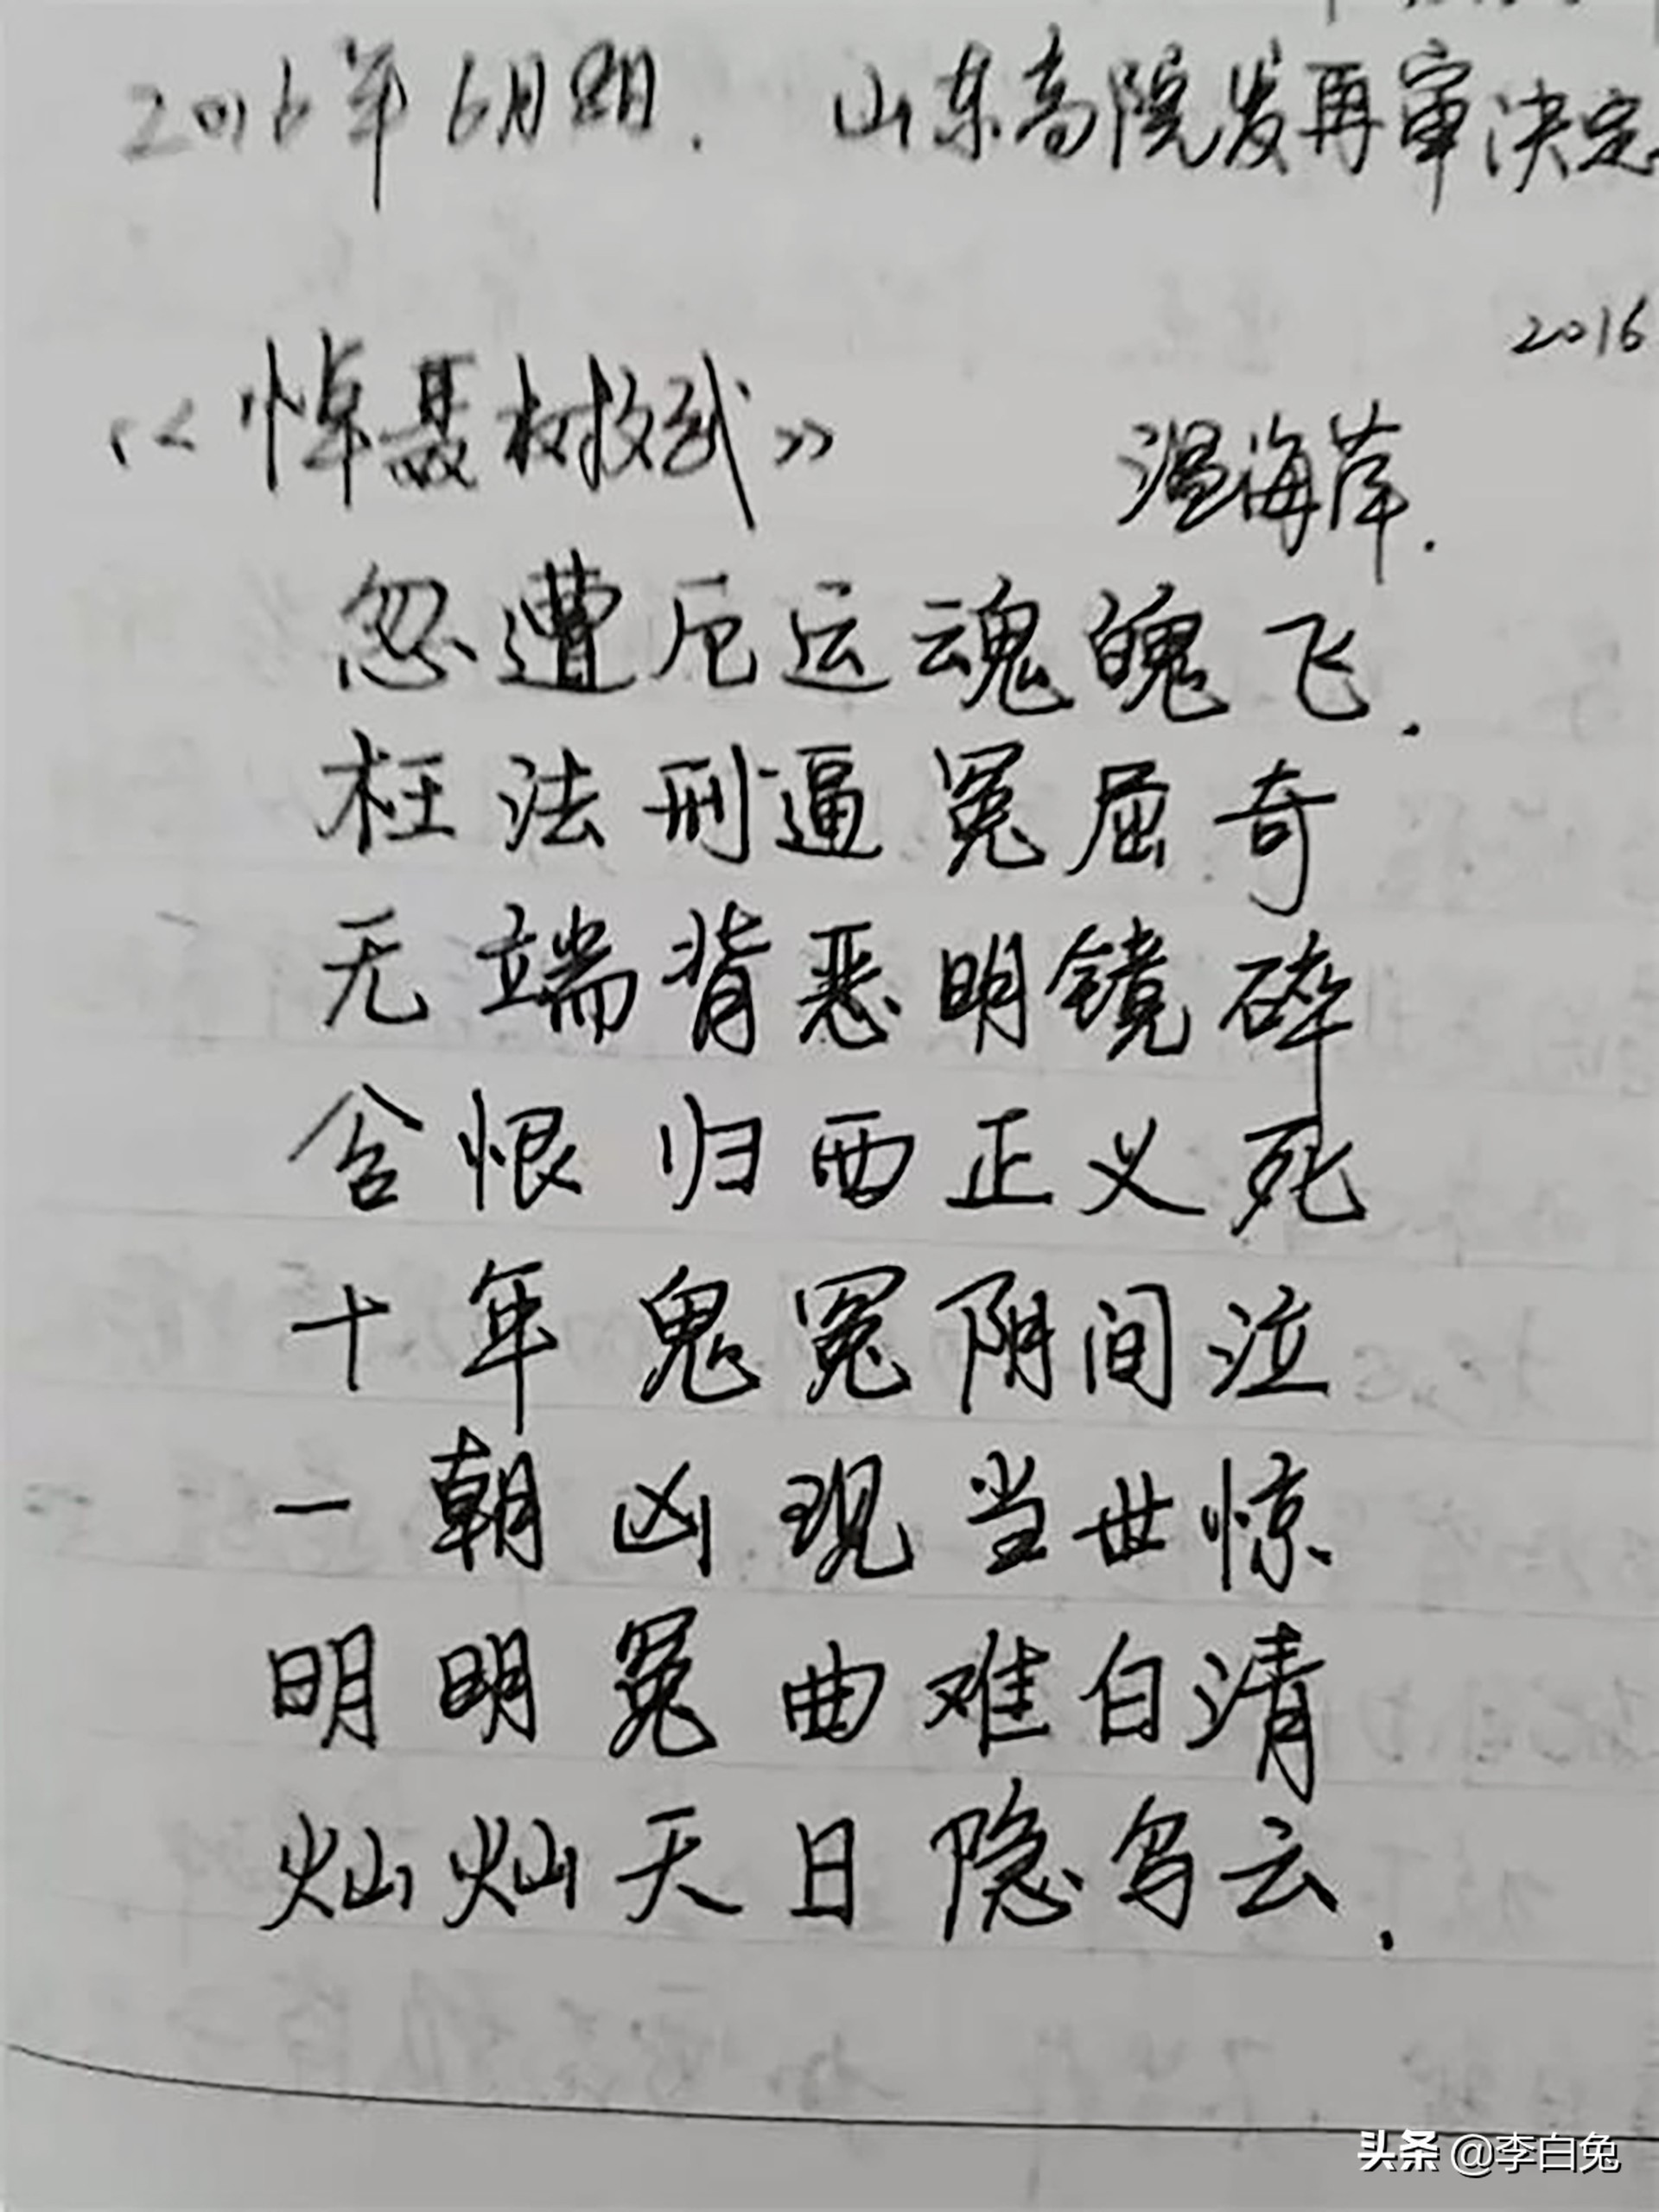 2016年6月8日. 山东高院发再审决定
2016
《悼聂树斌》 温海萍.
忽遭厄运魂魄飞.
枉法刑逼冤屈奇
无端背恶明镜碎
含恨归西正义死
十年鬼冤阴间泣
一朝凶现当世惊
明明冤曲难白清
灿灿天日隐乌云.
头条 @李白兔